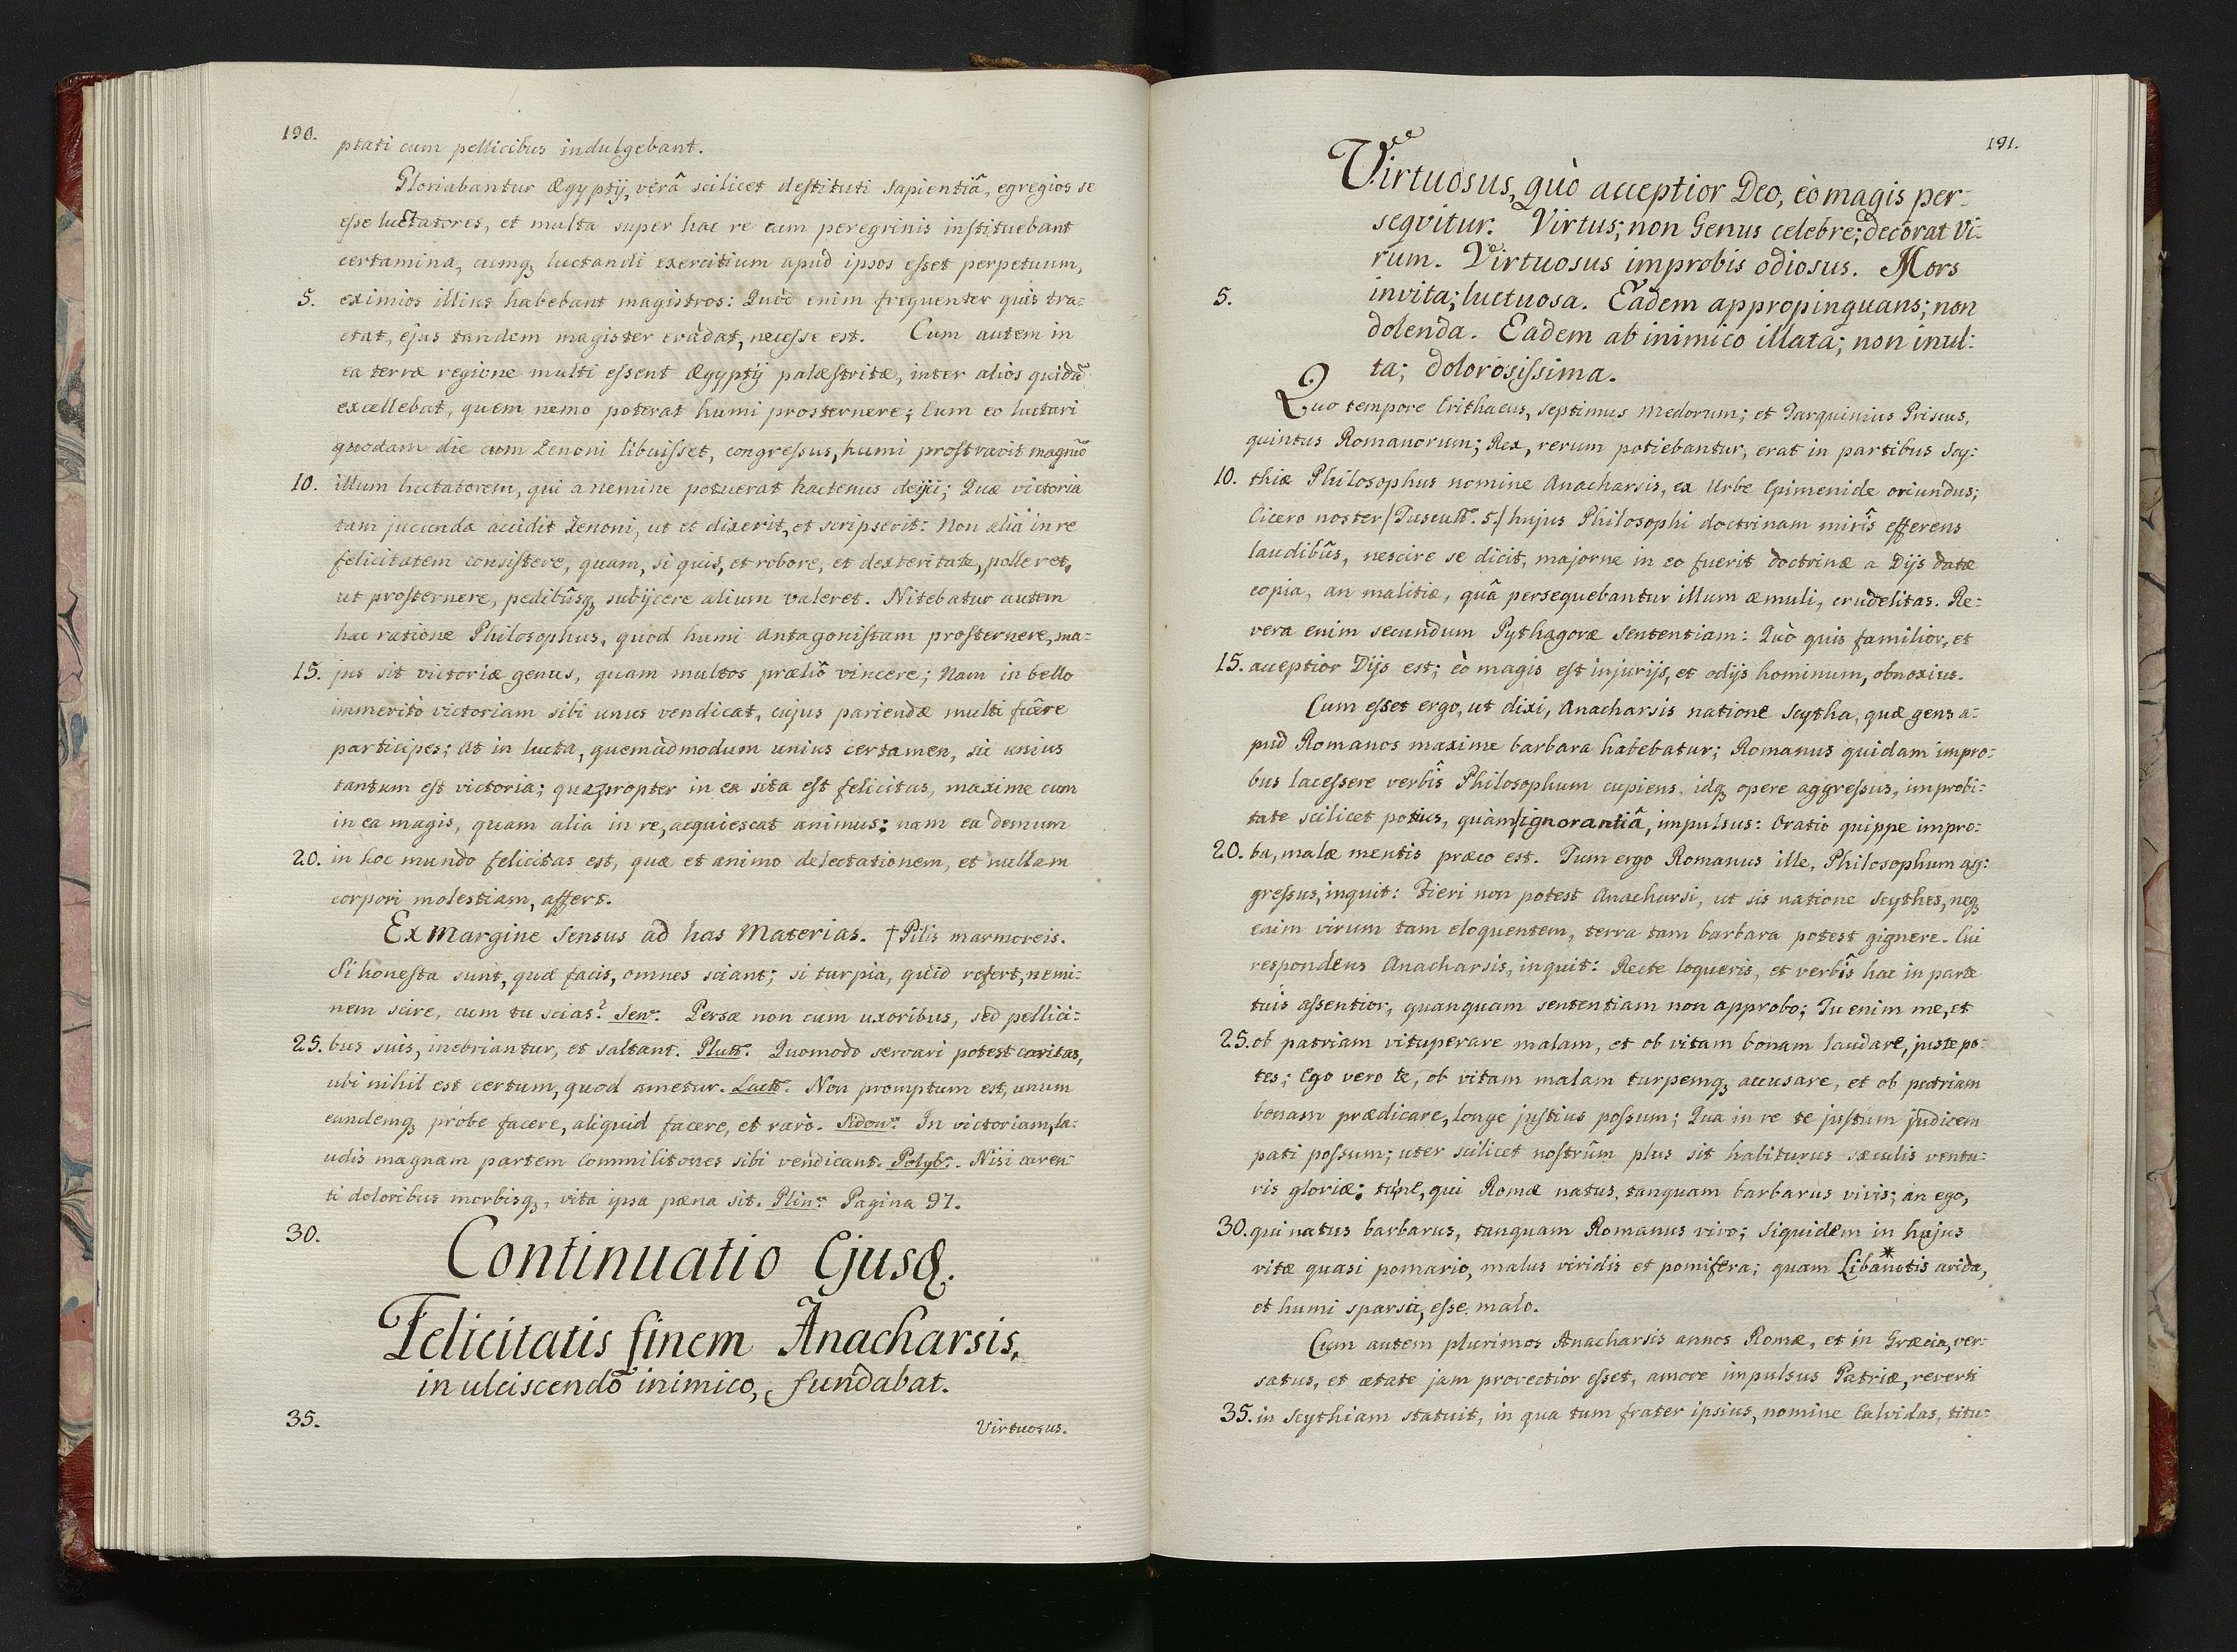 190.
ptati cum pellicibus indulgebant.
Gloriabantur Ægyptij, verâ scilicet destituti sapientiâ, egregios se
esse luctatores, et multa super hac re cum peregrinis instituebant
certamina, cumq luctandi exercitium apud ipsos esset perpetuum,
5. eximios illius habebant magistros: Quòd enim frequenter quis tra=
ctat, ejus tandem magister evadat, necesse est. Cum autem in
ea terræ regione multi essent Ægyptij palæstritæ, inter alios quidã
excellebat, quem nemo poterat humi prosternere; Cum eo luctari
quodam die cum Zenoni libuisset, congressus, humi prostravit magnũ
10. illum luctatorem, qui a nemine potuerat hactenus deijci; Quæ victoria
tam jucunda accidit Zenoni, ut et dixerit, et scripserit: Non alia in re
felicitatem consistere, quam, si quis, et robore, et dexteritate, polleret,
ut prosternere, pedibûsq subijcere alium valeret. Nitebatur autem
hac ratione Philosophus, quod humi Antagonistam prosternere, ma=
15. jus sit victoriæ genus, quam multos præliô vincere; Nam in bello
immeritò victoriam sibi unus vendicat, cujus pariendæ multi fuêre
participes; at in lucta, quemadmodum unius certamen, sic unius
tantum est victoria; quapropter in ea sita est felicitas, maxime cum
in ea magis, quam alia in re, acquiescat animus: nam ea demum
20. in hoc mundo felicitas est, quæ et animo delectationem, et nullam
corpori molestiam, affert.
Ex Margine Sensus ad has Materias. † Pilis marmoreis.
Si honesta sunt, quæ facis, omnes sciant; si turpia, quid refert, nemi=
nem scire, cum tu scias? Sen. Persæ non cum uxoribus, sed pellici=
25. bus suis, inebriantur, et saltant. Plutt. Quomodo servari potest caritas,
ubi nihil est certum, quod ametur. Lactt. Non promptum est, unum
eundemq probe facere, aliquid facere, et rarò. Sidon. In victoriam, la=
udis magnam partem Commilitones sibi vendicant. Polyb. Nisi caren=
ti doloribus morbisq, vita ipsa pæna sit. Plin. Pagina 97.
30. Continuatio Ejusq.
Felicitatis finem Anacharsis,
in ulciscendô inimico, fundabat.
35.
Virtuosus.
191.
Virtuosus, quò acceptior Deo, eò magis per=
seqvitur. Virtus; non Genus celebre; decorat Vi=
rum. Virtuosus improbis odiosus. Mors
5. invita; luctuosa. Eadem appropinquans; non
dolenda. Eadem ab inimico illata; non inul:
ta; dolorosissima.
Quo tempore Crithaeus, septimus Medorum; et Tarquinius Priscus,
quintus Romanorum; Rex, rerum potiebantur, erat in partibus Scy:
10. thiæ Philosophus nomine Anacharsis, ex Urbe Epimenide oriundus;
Cicero noster /Tuscull. 5./ hujus Philosophi doctrinam mirîs efferens
laudibûs, nescire se dicit, majorne in eo fuerit doctrinæ a Dijs datæ
copia, an malitiæ, quâ persequebantur illum æmuli, crudelitas. Re=
vera enim secundum Pythagoræ Sententiam: Quò quis familior, et
15. acceptior Dijs est; eò magis est injurijs, et odijs hominum, obnoxius.
Cum esset ergo, ut dixi, Anacharsis natione Scytha, quæ gens a=
pud Romanos maxime barbara habebatur; Romanus quidam impro=
bus lacessere verbîs Philosophum cupiens, idq opere aggressus, improbi=
tate scilicet potius, quàm ignorantiâ, impulsus: Oratio quippe impro=
20. ba, malæ mentis præco est. Tum ergo Romanus ille, Philosophum ag:
gressus, inquit: Fieri non potest Anacharsi, ut sis natione Scythes, neq
enim virum tam eloquentem, terra tam barbara potest gignere. Cui
respondens Anacharsis, inquit: Recte loqueris, et verbîs hac in parte
tuis assentior, quanquam sententiam non approbo; Tu enim me, et
25. ob patriam vituperare malam, et ob vitam bonam laudare, juste po=
tes; Ego vero te, ob vitam malam turpemq accusare, et ob patriam
bonam prædicare, longe justius possum; Qua in re te justum judicem
pati possum; uter scilicet nostrûm plus sit habiturus sæculis ventu=
ris gloriæ: tune, qui Romæ natus, tanquam barbarus vivis; an ego,
30. qui natus barbarus, tanquam Romanus vivo; siquidem in hujus
vitæ quasi pomario, malus viridis et pomifera; quam Libanotis* arida,
et humi sparsa, esse malo.
Cum autem plurimos Anacharsis annos Romæ, et in Græcia, ver=
satus, et ætate jam provectior esset, amore impulsus Patriæ, reverti
35. in Scythiam statuit, in qua tum frater ipsius, nomine Calvidas, titu=